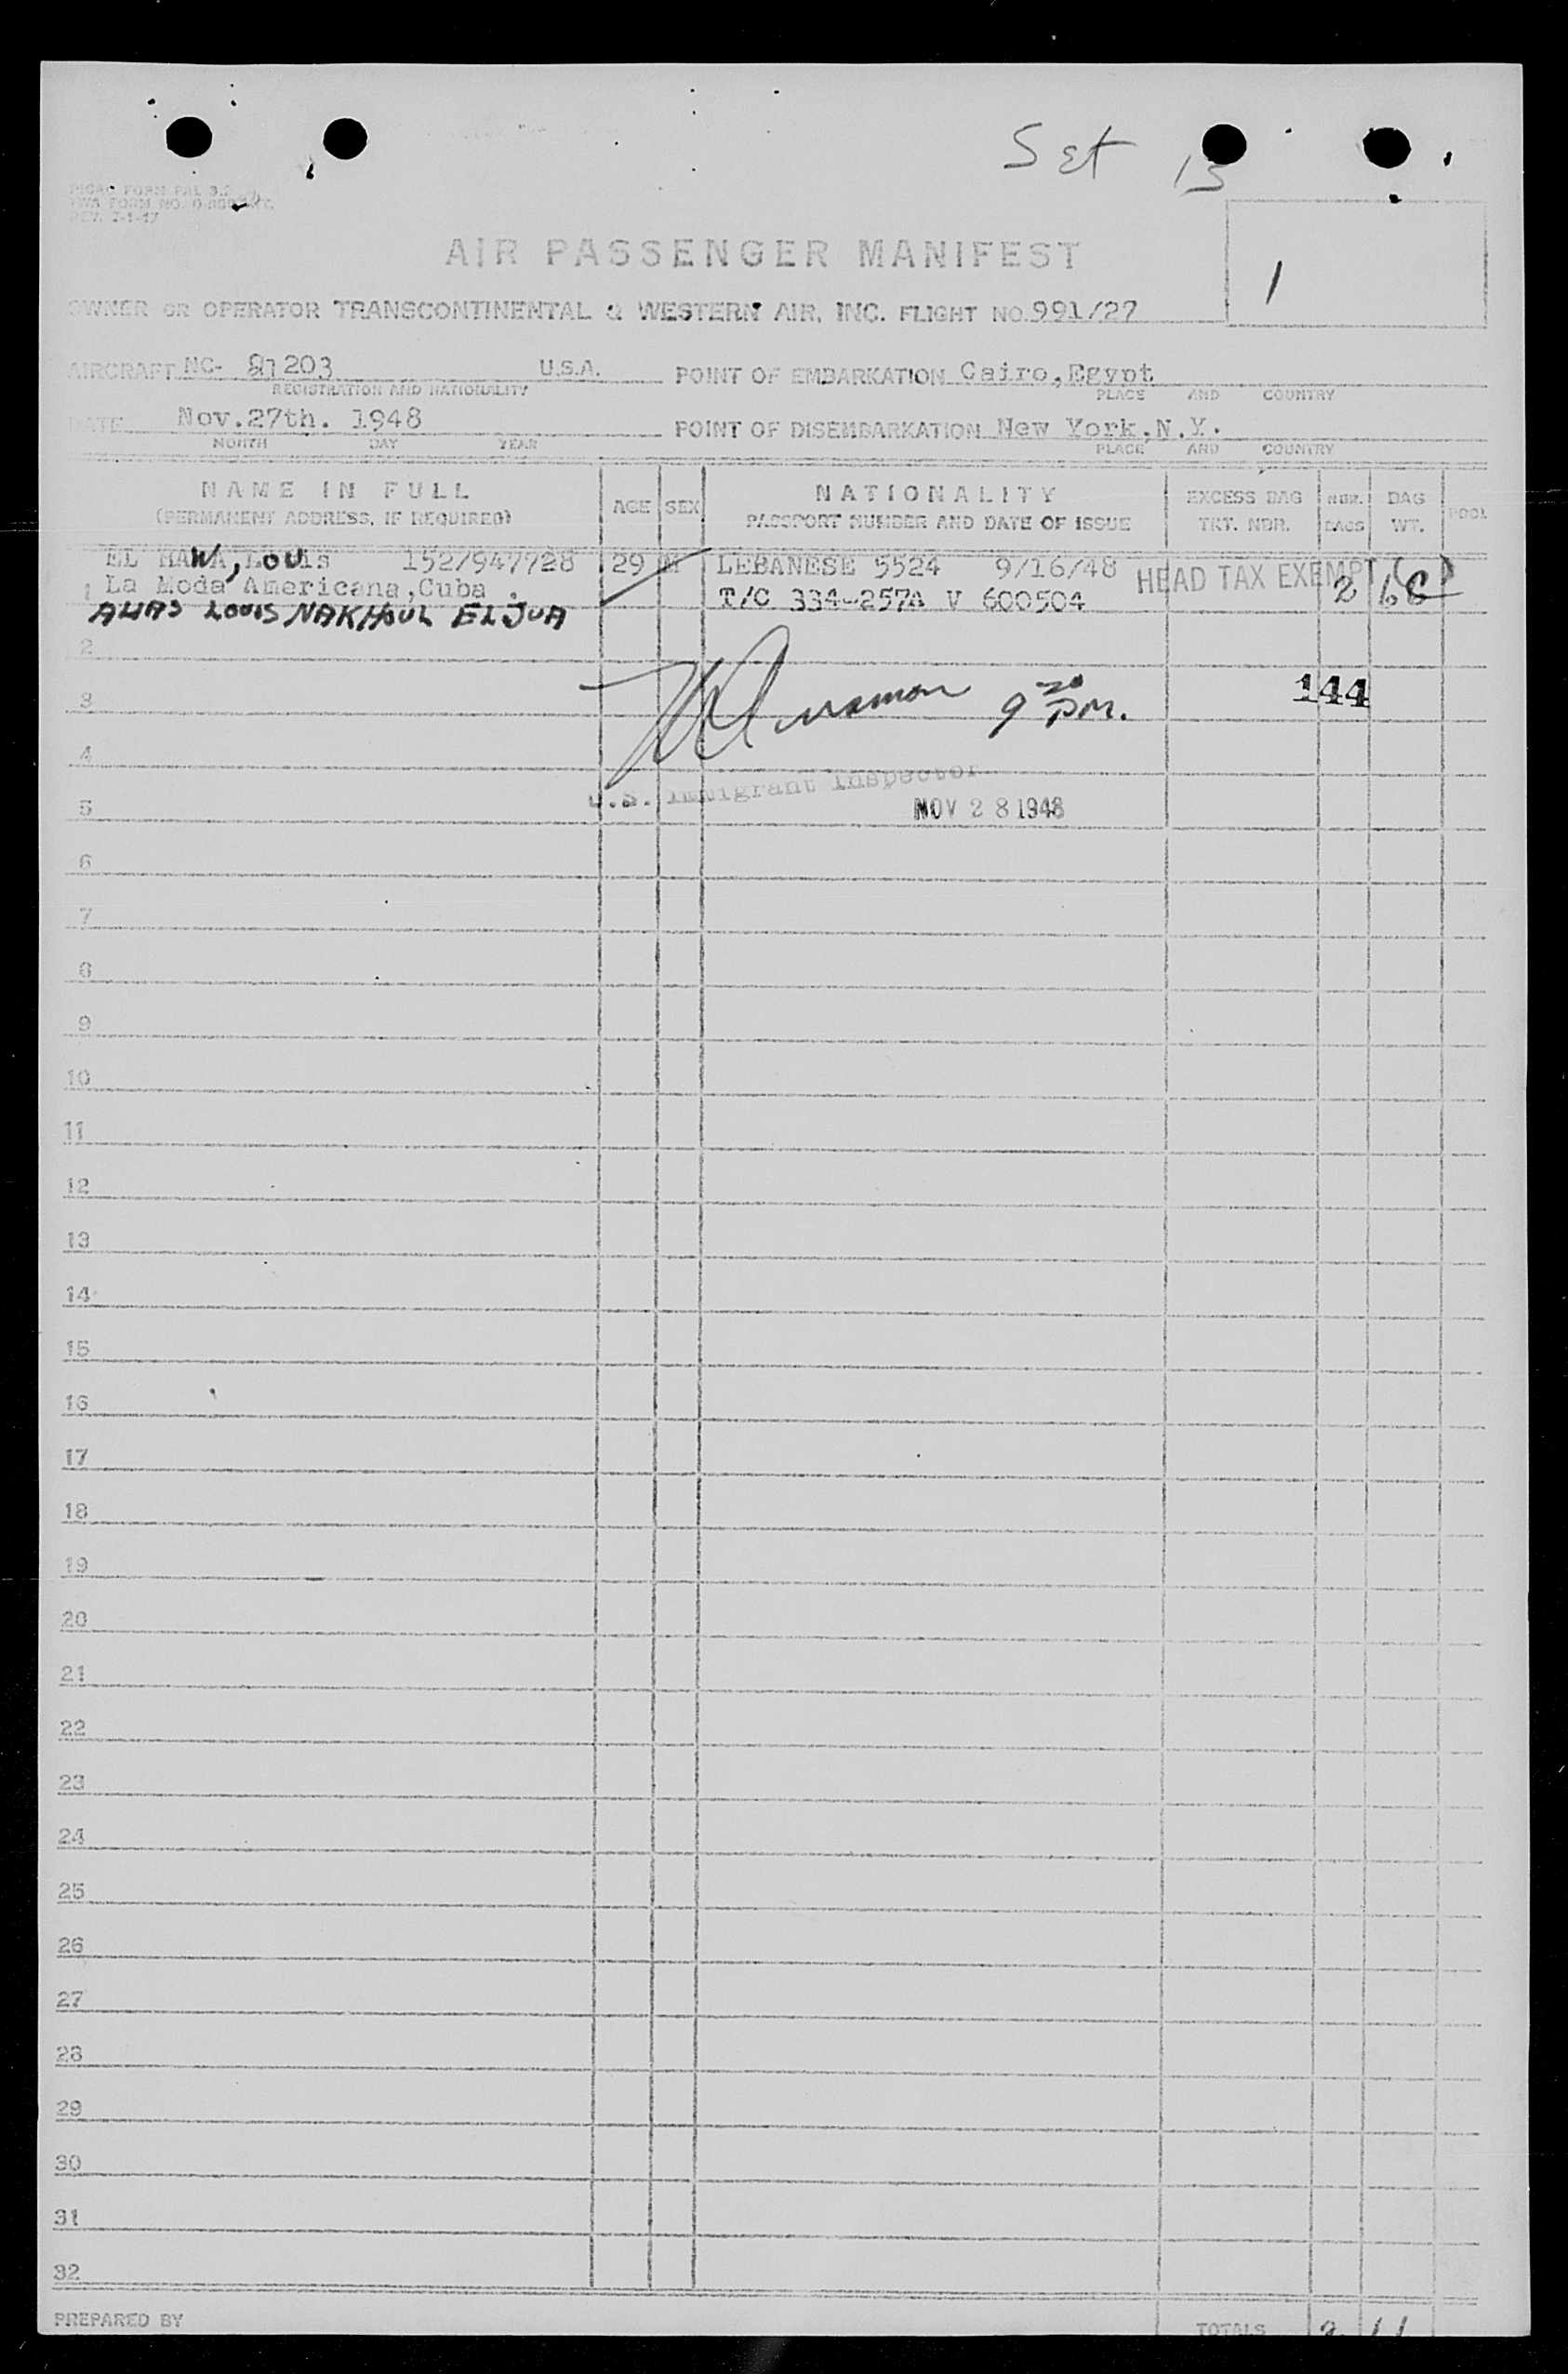 Set 13
PICAO FORM PAL 3.2
TWA FORM NO.
REV. 7-1-47
AIR PASSENGER MANIFEST
1
OWNER OR OPERATOR TRANSCONTINENTAL & WESTERN AIR, INC. FLIGHT NO. 991/27
AIRCRAFT NC- 81203 U.S.A. POINT OF EMBARKATION Cairo, Egypt
REGISTRATION AND NATIONALITY PLACE AND COUNTRY
DATE Nov.27th. 1948 POINT OF DISEMBARKATION New York,N.Y.
MONTH DAY YEAR PLACE AND COUNTRY
NAME IN FULL AGE SEX NATIONALITY EXCESS BAG NBR. BAG POOL
(PERMANENT ADDRESS, IF REQUIRED) PASSPORT NUMBER AND DATE OF ISSUE TKT. NBR. BAGS WT.
EL HAWA, LOUIS 152/947728 29 M LEBANESE 5524 9/16/48 HEAD TAX EXEMPT
1 La Moda Americana, Cuba . T/C 334-257A V 600504 2
ALIAS LOUIS NAKHOUL ELJUA
2
3 9 30 PM. 144
4
U.S. Immigrant Inspector
5 NOV 28 1948
6
7
8
9
10
11
12
13
14
15
16
17
18
19
20
21
22
23
24
25
26
27
28
29
30
31
32
PREPARED BY TOTALS